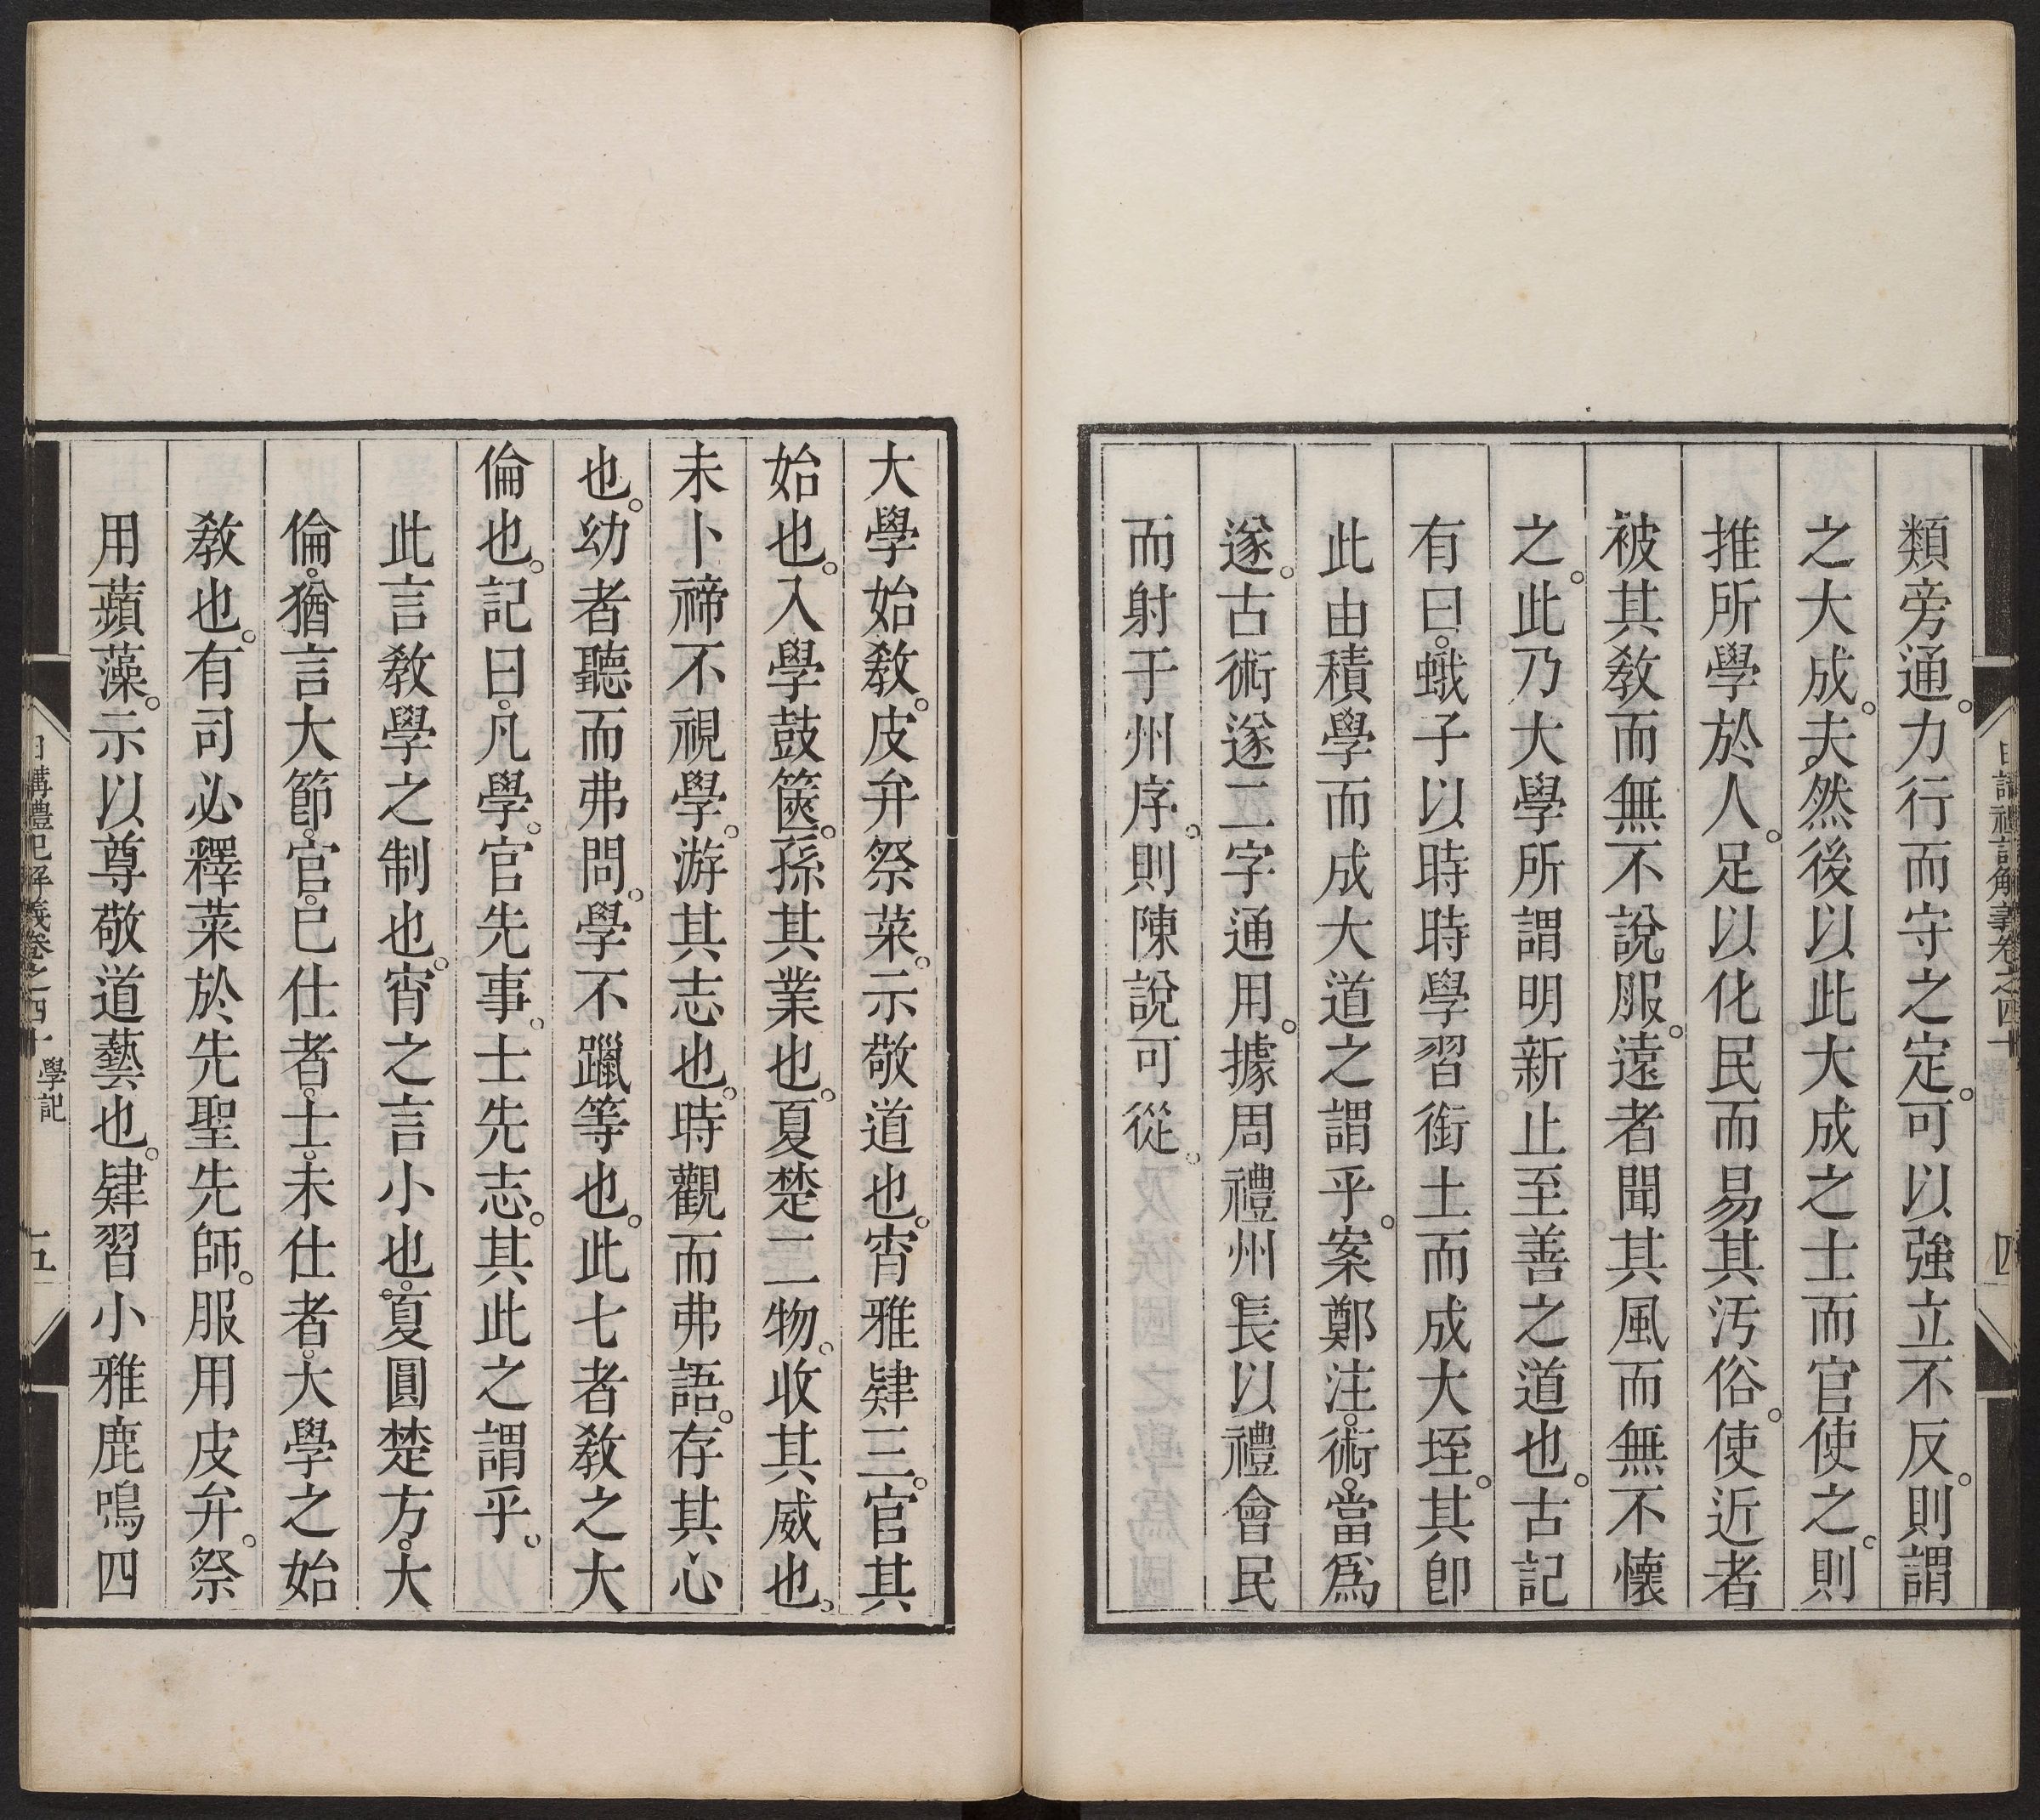 類旁通。力行而守之定。可以強立不反。則謂
之大成。夫然後以此大成之士而官使之。則
推所學於人。足以化民而易其汚俗。使近者
被其敎而無不說服。遠者聞其風而無不懷
之。此乃大學所謂明新止至善之道也。古記
有曰。蛾子以時時學習銜土而成大垤。其卽
此由積學而成大道之謂乎。案鄭注。術。當爲
遂。古術遂二字通用。據周禮州。長以禮會民
而射于州序。則陳說可從。
大學始敎。皮弁祭菜。示敬道也。宵雅肄三。官其
始也。入學鼓篋。孫其業也。夏楚二物。收其威也。
未卜禘不視學。游其志也。時觀而弗語。存其心
也。幼者聽而弗問。學不躐等也。此七者敎之大
倫也。記曰。凡學。官先事。士先志。其此之謂乎。
此言敎學之制也。宵之言小也。夏圓楚方。大
倫。猶言大節。官。已仕者。士。未仕者。大學之始
敎也。有司必釋菜於先聖先師。服用皮弁。祭
用蘋藻。示以尊敬道藝也。肄習小雅鹿鳴四
日講禮記解義卷之四十 學記 五